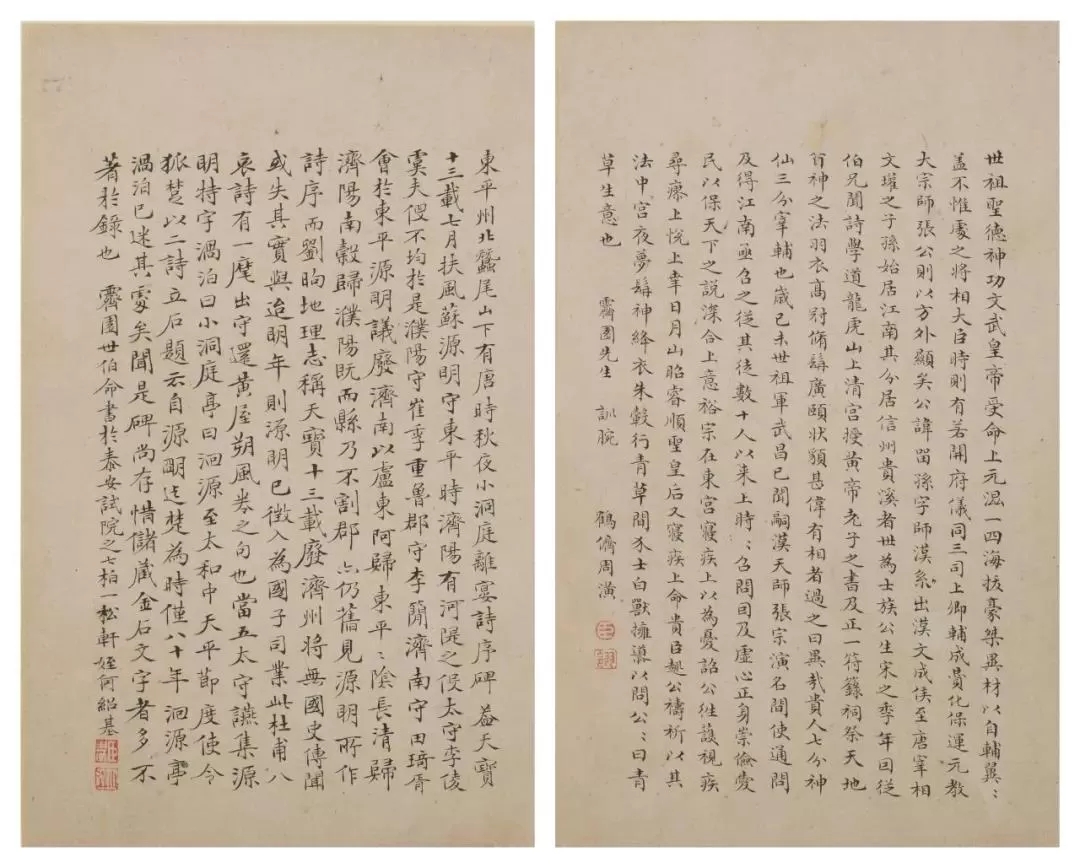 世祖聖德神功文武皇帝受命上元混一四海拔豪桀異材以自輔翼〻
盖不惟處之將相大臣時則有若開府儀同三司上卿輔成贊化保運元教
大宗師張公則以方外顯矣公諱留孫字師漢系出漢文成侯至唐宰相
文瓘之子孫始居江南其分居信州貴溪者世為士族公生宋之季年回從
伯兄聞詩學道龍虎山上清宮授黃帝老子之書及正一符籙祠祭天地
百神之法羽衣高冠脩髯廣頤狀貌甚偉有相者過之曰異哉貴人七分神
仙三分宰輔也歲己未世祖軍武昌已聞嗣漢天師張宗演名間使通問
及得江南亟召之從其徒數十人以来上時〻召問因及虛心正身崇儉愛
民以保天下之說深合上意裕宗在東宮寢疾上以為憂詔公往護視疾
尋瘳上悅上幸日月山昭睿順聖皇后又寢疾上命貴臣趣公禱祈以其
法中宮夜夢髯神絳衣朱轂行青草間介士白獸擁導以問公〻曰青
草生意也 霽園先生 訓腕 鶴儕周潢
東平州北蠶尾山下有唐時秋夜小洞庭離宴詩序碑蓋天寶
十三載七月扶風蘇源明守東平時濟陽有河隄之役太守李倰
以夫役不均於是濮陽守崔季重魯郡守李蘭濟南守田琦胥
會於東平源明議廢濟南以盧東阿歸東平〻陰長清歸
濟陽南穀歸濮陽既而縣乃不割郡亦仍舊見源明所作
詩序而劉昫地理志稱天寶十三載廢濟州將無國史傳聞
或失其實與迨明年則源明已徵入為國子司業此杜甫八
哀詩有一麾出守還黃屋朔風卷之句也當五太守讌集源
明特字渦泊曰小洞庭亭曰洄源至太和中天平節度使令
狐楚以二詩立石題云自源明迄楚為時僅八十年洄源亭
渦泊已迷其處矣聞是碑尚存惜儲藏金石文字者多不
著於錄也 霽園世伯命書於泰安試院之七柏一松軒姪何紹基